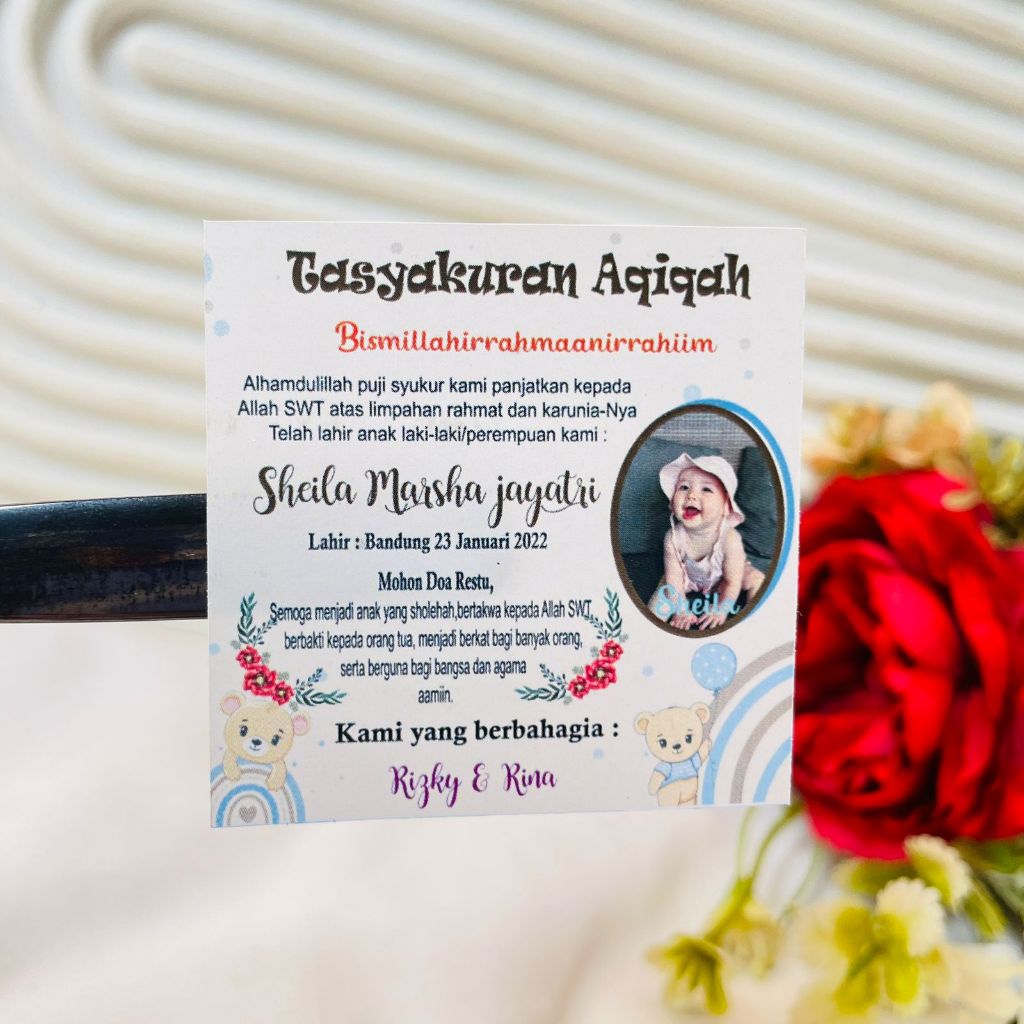 Tasyakuran Aqiqah
Bismillahirrahmaanirrahiim
Alhamdulillah puji syukur kami panjatkan kepada
Allah SWT atas limpahan rahmat dan karunia-Nya
Telah lahir anak laki-laki/perempuan kami :
Sheila Marsha jayatri
Lahir : Bandung 23 Januari 2022
Sheila
Mohon Doa Restu,
Semoga menjadi anak yang sholehah,bertakwa kepada Allah SWT,
berbakti kepada orang tua, menjadi berkat bagi banyak orang,
serta berguna bagi bangsa dan agama
aamiin.
Kami yang berbahagia :
Rizky & Rina